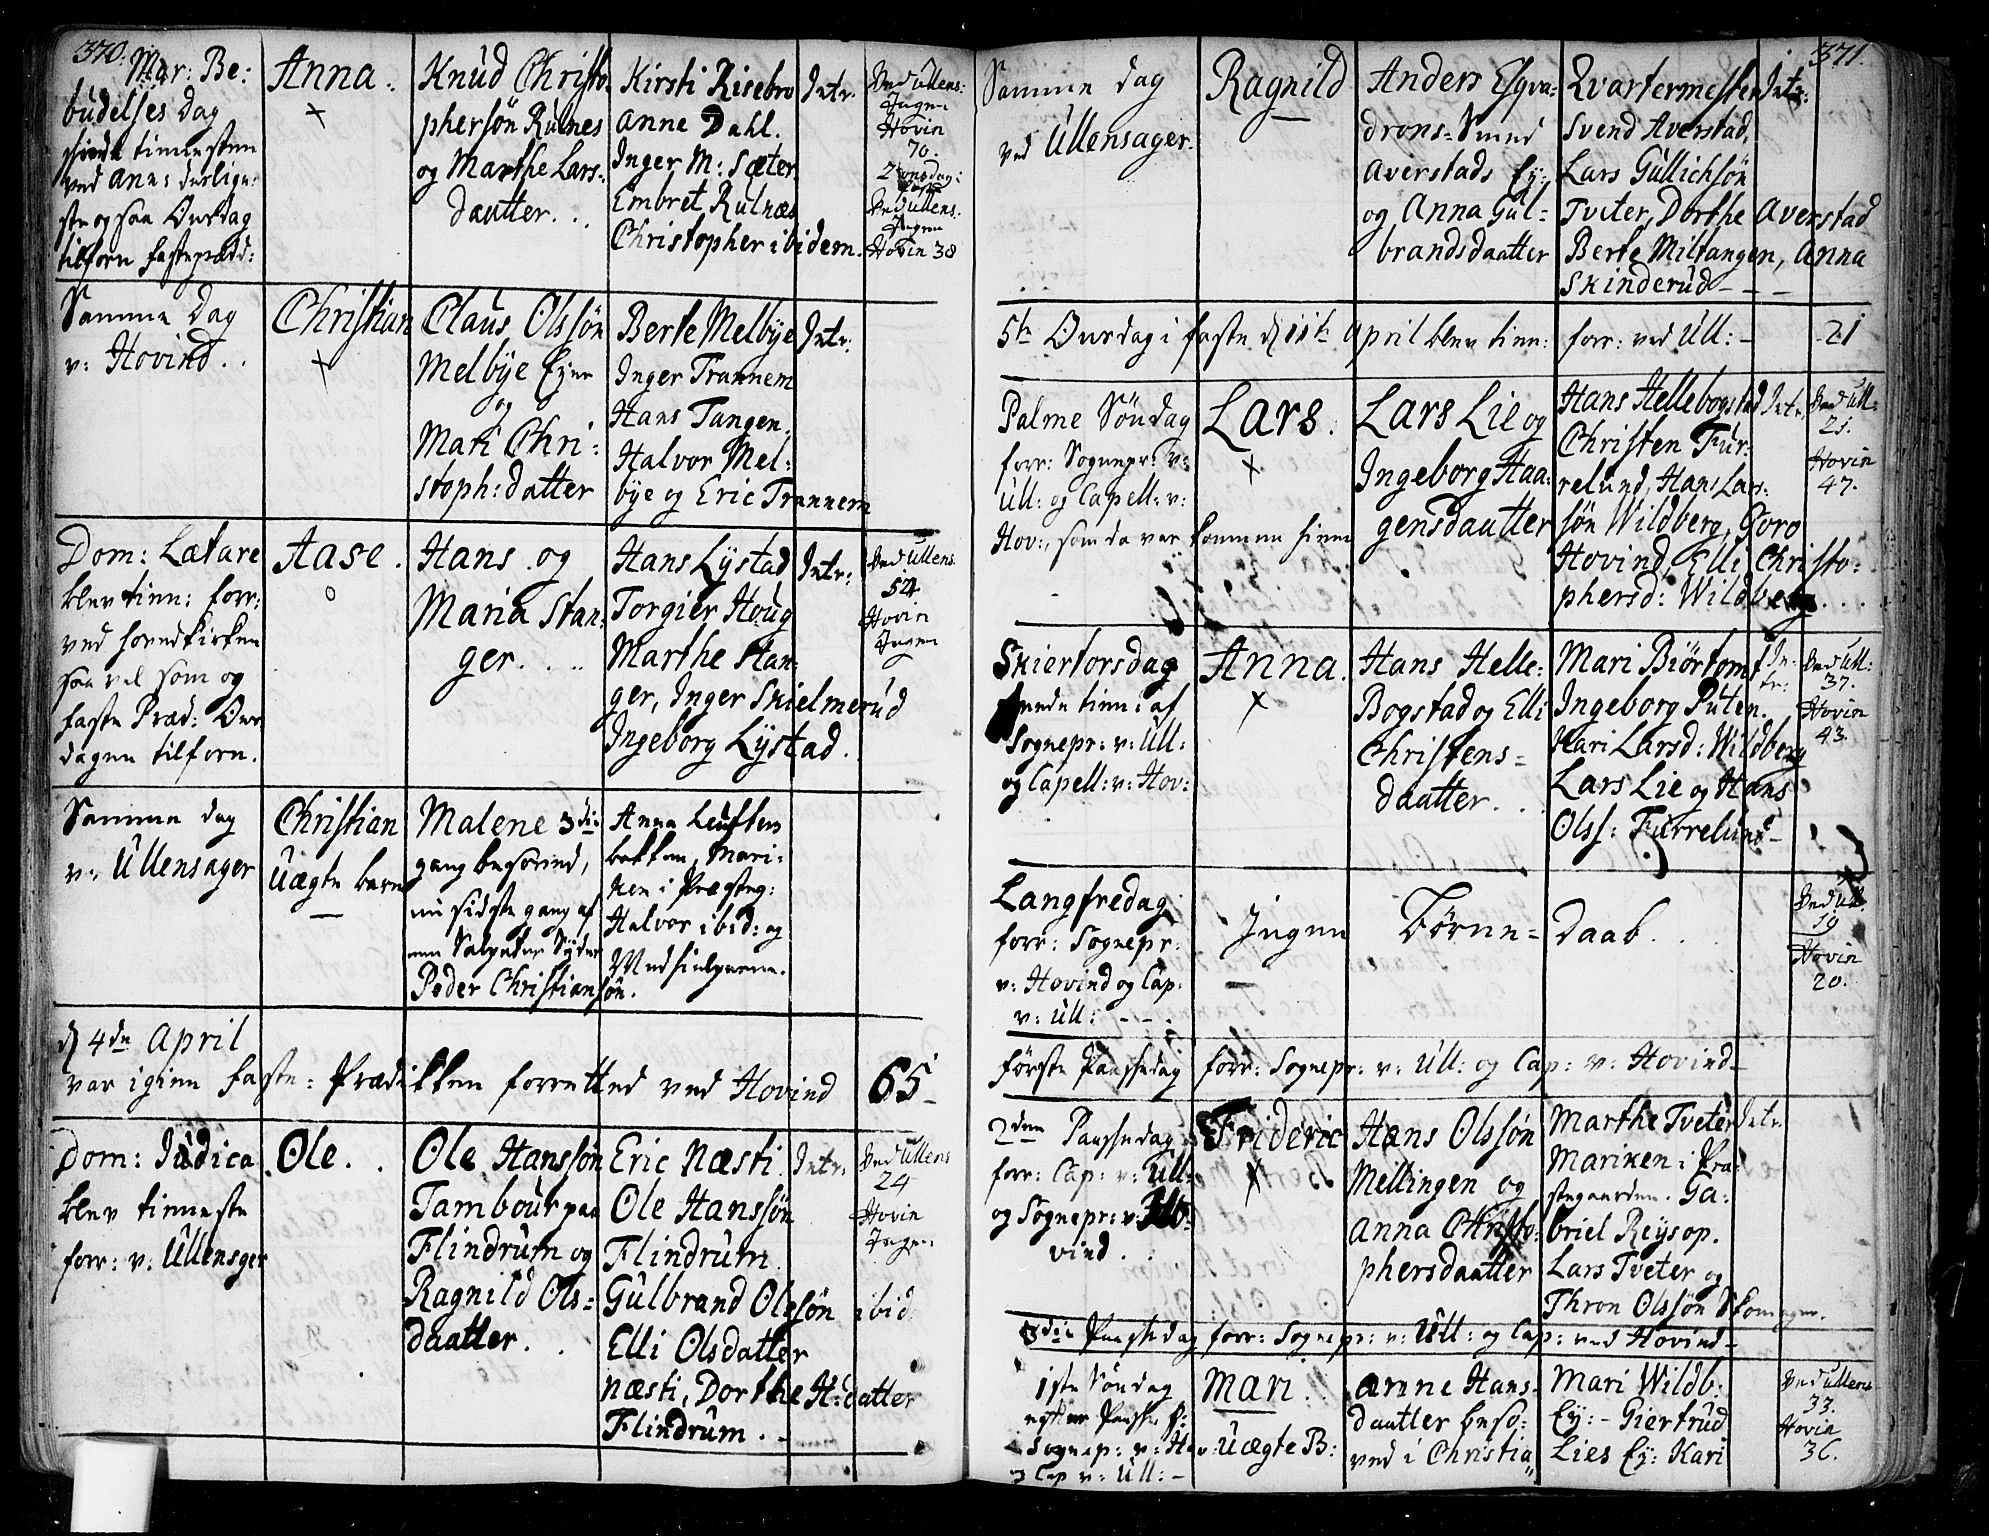 370.
Mar: Be:
budelses Dag
tienesten
ved
ste og saa Onsdag
tilforn fastepræd:
Anna.
Knud Christo
phersön Rulnes
og Marthe Lars:
daatter. .
Kirsti Risebro
Anne Dahl.
Inger M: Sæter
Embret Rulnæs
Christopher ibidem.
Intr.
Ved Ullens:
Ingen
Hovin
70.
2 onsdag:
faste
Ved Ullens.
Ingen
Hovin 38
Samme Dag
v: Hovind. .
Christian
Claus Olssön
Melbye Eyer
og
Mari Chri:
stoph: datter
Berte Melbye
Inger Trannem
Hans Tangen.
Halvor Mel:
bye og Eric Trannem
Intr:
Dom: Lætare
blev tien: forr:
ved hovedkirken
saa vel som og
faste Præd: Ons
dagen tilforn.
Aase.
Hans og
Maria Stan:
ger. . ..
Hans Lystad
Torgier Houg
Marthe Stan:
ger, Inger Skielmerud
Ingeborg Lystad.
Intr:
Ved Ullens.
54
Hovin
Ingen
Samme dag
v: Ullensager
Christian
Uægte barn
Malene 3die
gang besovind,
nu sidste gang af
een Salpeter Syder
Peder Christiansön.
Anna Leuften
bakken, Mari:
ken i Præsteg:
Halvor ibid: og
Medhielperne.
d 4de April
var igien faste-Prædikken forretted ved Hovind 65
Dom: Judica
blev tienneste
forr: v: Ullensger
Ole. .
Ole Hanssön
Tambour paa
Flindrum og
Ragnild Ols=
daatter. .
Eric Næsti
Ole Hanssön
Flindrum.
Gulbrand Olssön ibid
Elli Olsdatter
Næsti, Dorthe H:datter
Flindrum. -
Intr.
Ved Ullens
24
Hovin
Ingen
371.
Samme dag
ved Ullensager.
Ragnild
Anders Esqva:
drons=Smed
Averstads Ey:
og Anna Gul=
brandsdaatter
Qvartermester
Svend Averstad,
Lars Gullichsön
Tveter, Dorthe Averstad
Berte Miltangen, Anna
Skinderud - - -
Intr:
5te Onsdag i faste d 11te April blev tien: forr: ved Ull: - 21
Palme Söndag
forr: Sognepr: v:
Ull: og Capell: v:
Hov:, som da var kommen hiem
Lars.
Lars Lie og
Ingeborg Haa:
gensdaatter
Hans Hellebogstad
Christen Fur=
relund, Hans Lars:
sön Wildberg, Goro
Hovind, Elli Christo:
phersd: Wildberg. . .
Intr.
Ved Ull:
21.
Hovin
47.
Skiertorsdag
tien: af
Sognepr: v: Ull:
og Capell: v: Hov:
Anna.
Hans Helle:
Bogstad og Elli
Christens=
daatter. .
Mari Biörtomt
Ingeborg Puten.
Kari Larsd: Wildberg
Lars Lie og Hans
Olss: Furrelund-
In:
tr:
Ved Ull:
37.
Hovin
43.
Langfredag
forr: Sognepr:
v: Hovind og Cap:
v: Ull: - - .
Ingen Börne=daab. .
Ved Ull.
19
Hovin
20.
Förste Paaskedag forr: Sognepr: v: Ull: og Cap: v: Hovind-
2den Paaskedag
forr: Cap: v: Ull:
og Sognepr: v: Ho
vind. .
Frideric
Hans Olssön
Mellingen og
Anna Christo:
phersdaatter
Marthe Tveter
Mariken i Præ:
stegaarden. Ga:
briel Reysop.
Lars Tveter og
Thron Olssön Skomager.
Intr.
3die Paaskedag forr: Sognepr: v: Ull: og Cap: ved Hovind-
1ste Söndag
efter Paaske f:
Sognep: v: Hov:
og Cap v: Ull: -
Mari. .
Uægte B:
Anne Hans-
daatter beso:
ved i Christia"
Mari Wildb:
Ey: - Giertrud
Lies Ey: Kari
Ved Ullens
33.
Hovin
36.